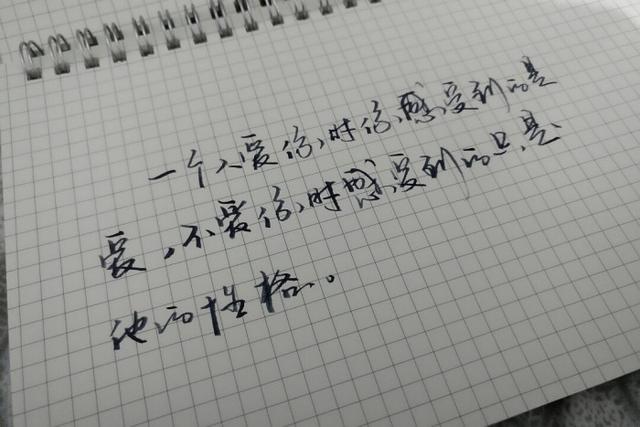 一个人爱你时你感受到的是
爱，不爱你时感受到的只是
他的性格。